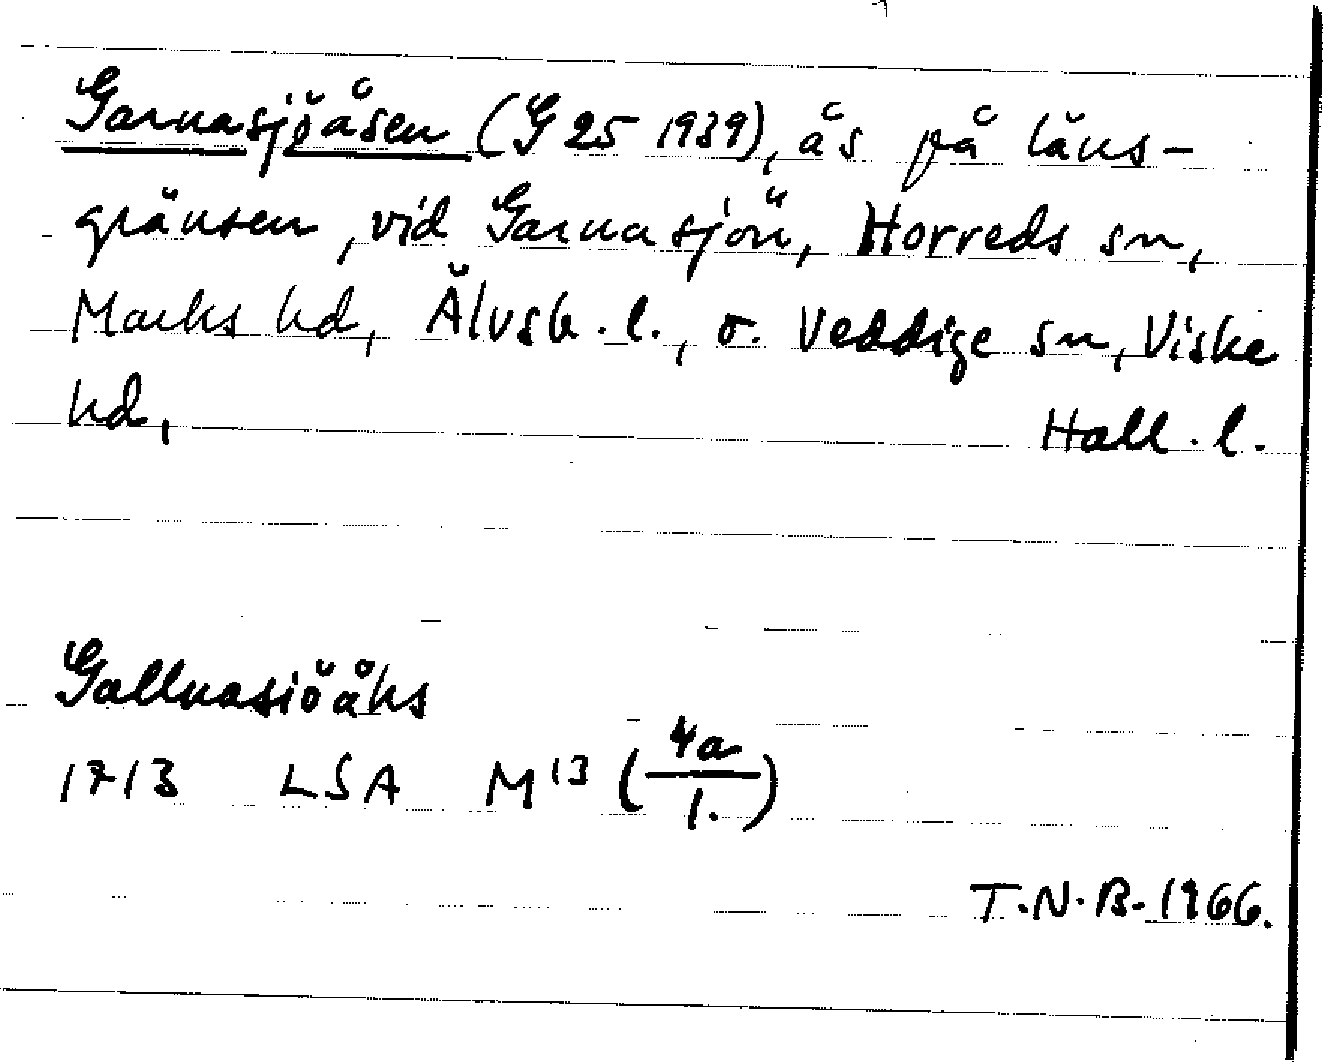 Garnasjöåsen (G 25 1939), ås på läns-
gränsen, vid Garnasjön, Horreds sn,
Marks hd, Älvsb. l., o. Veddige sn, Viske
hd, Hall. l.
Gallnasiöåhs
1713 LSA M13 (4a/1.)
T.N.B. 1966.